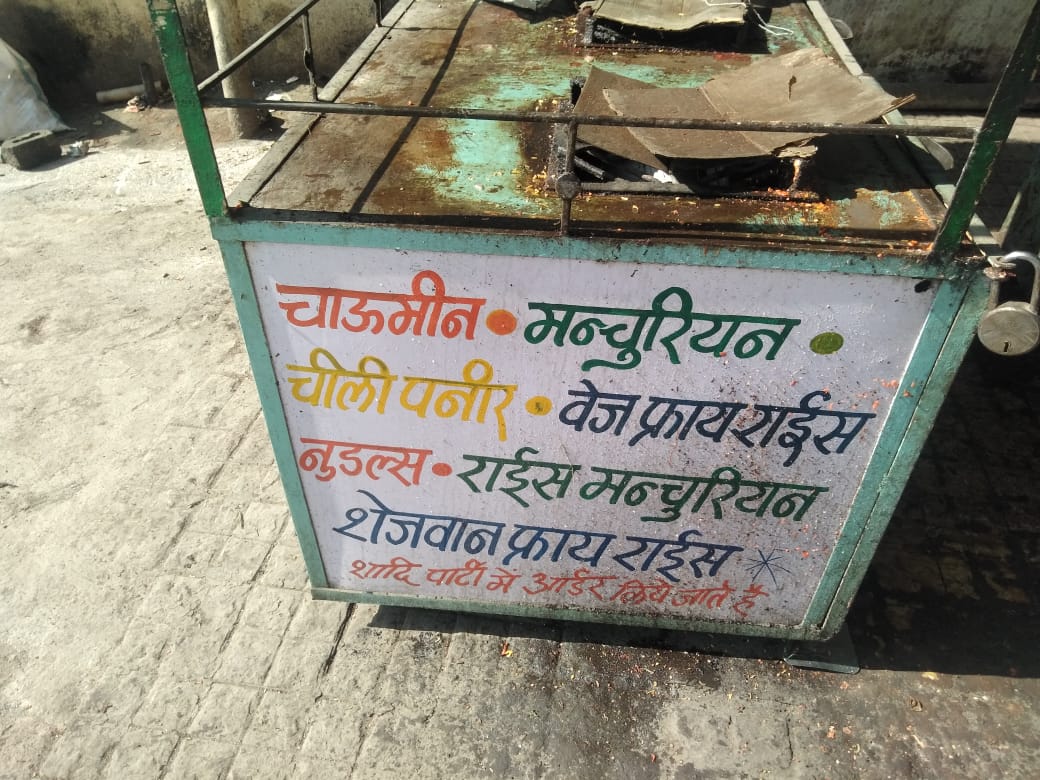 चाऊमीन • मन्चुरियन •
चीली पनीर • वेज फ्राय राईस
नुडल्स • राईस मन्चुरियन
शेजवान फ्राय राईस *
शादि पार्टी मे आर्डर लिये जाते है